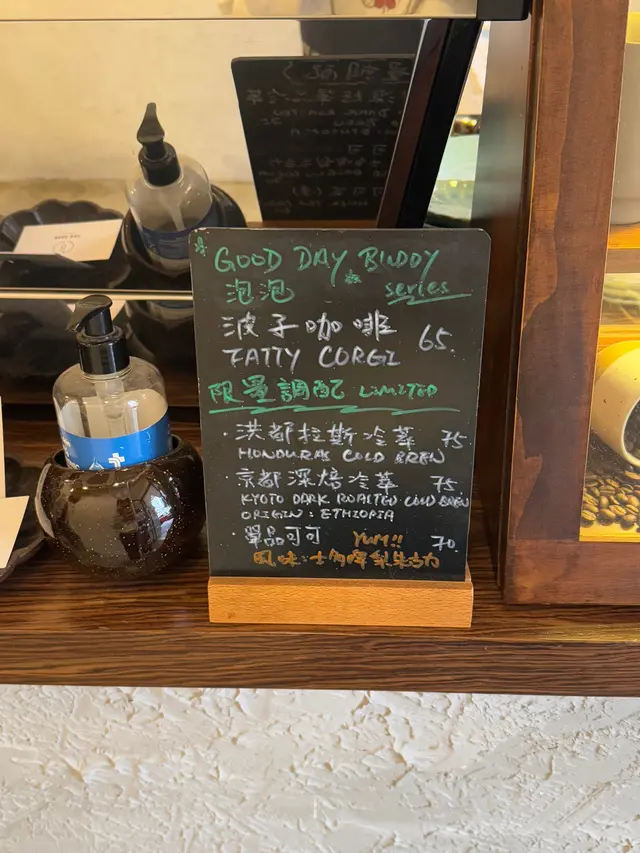 GOOD DAY BUDDY
泡泡 series
波子咖啡 65.
FATTY CORGI
限量調配 LIMITED
· 洪都拉斯冷萃 75
HONDURAS COLD BREW
· 京都深焙冷萃 75
KYOTO DARK ROASTED COLD BREW
ORIGIN: ETHIOPIA
· 單品可可 YUM!! 70.
風味:士多啤梨朱古力